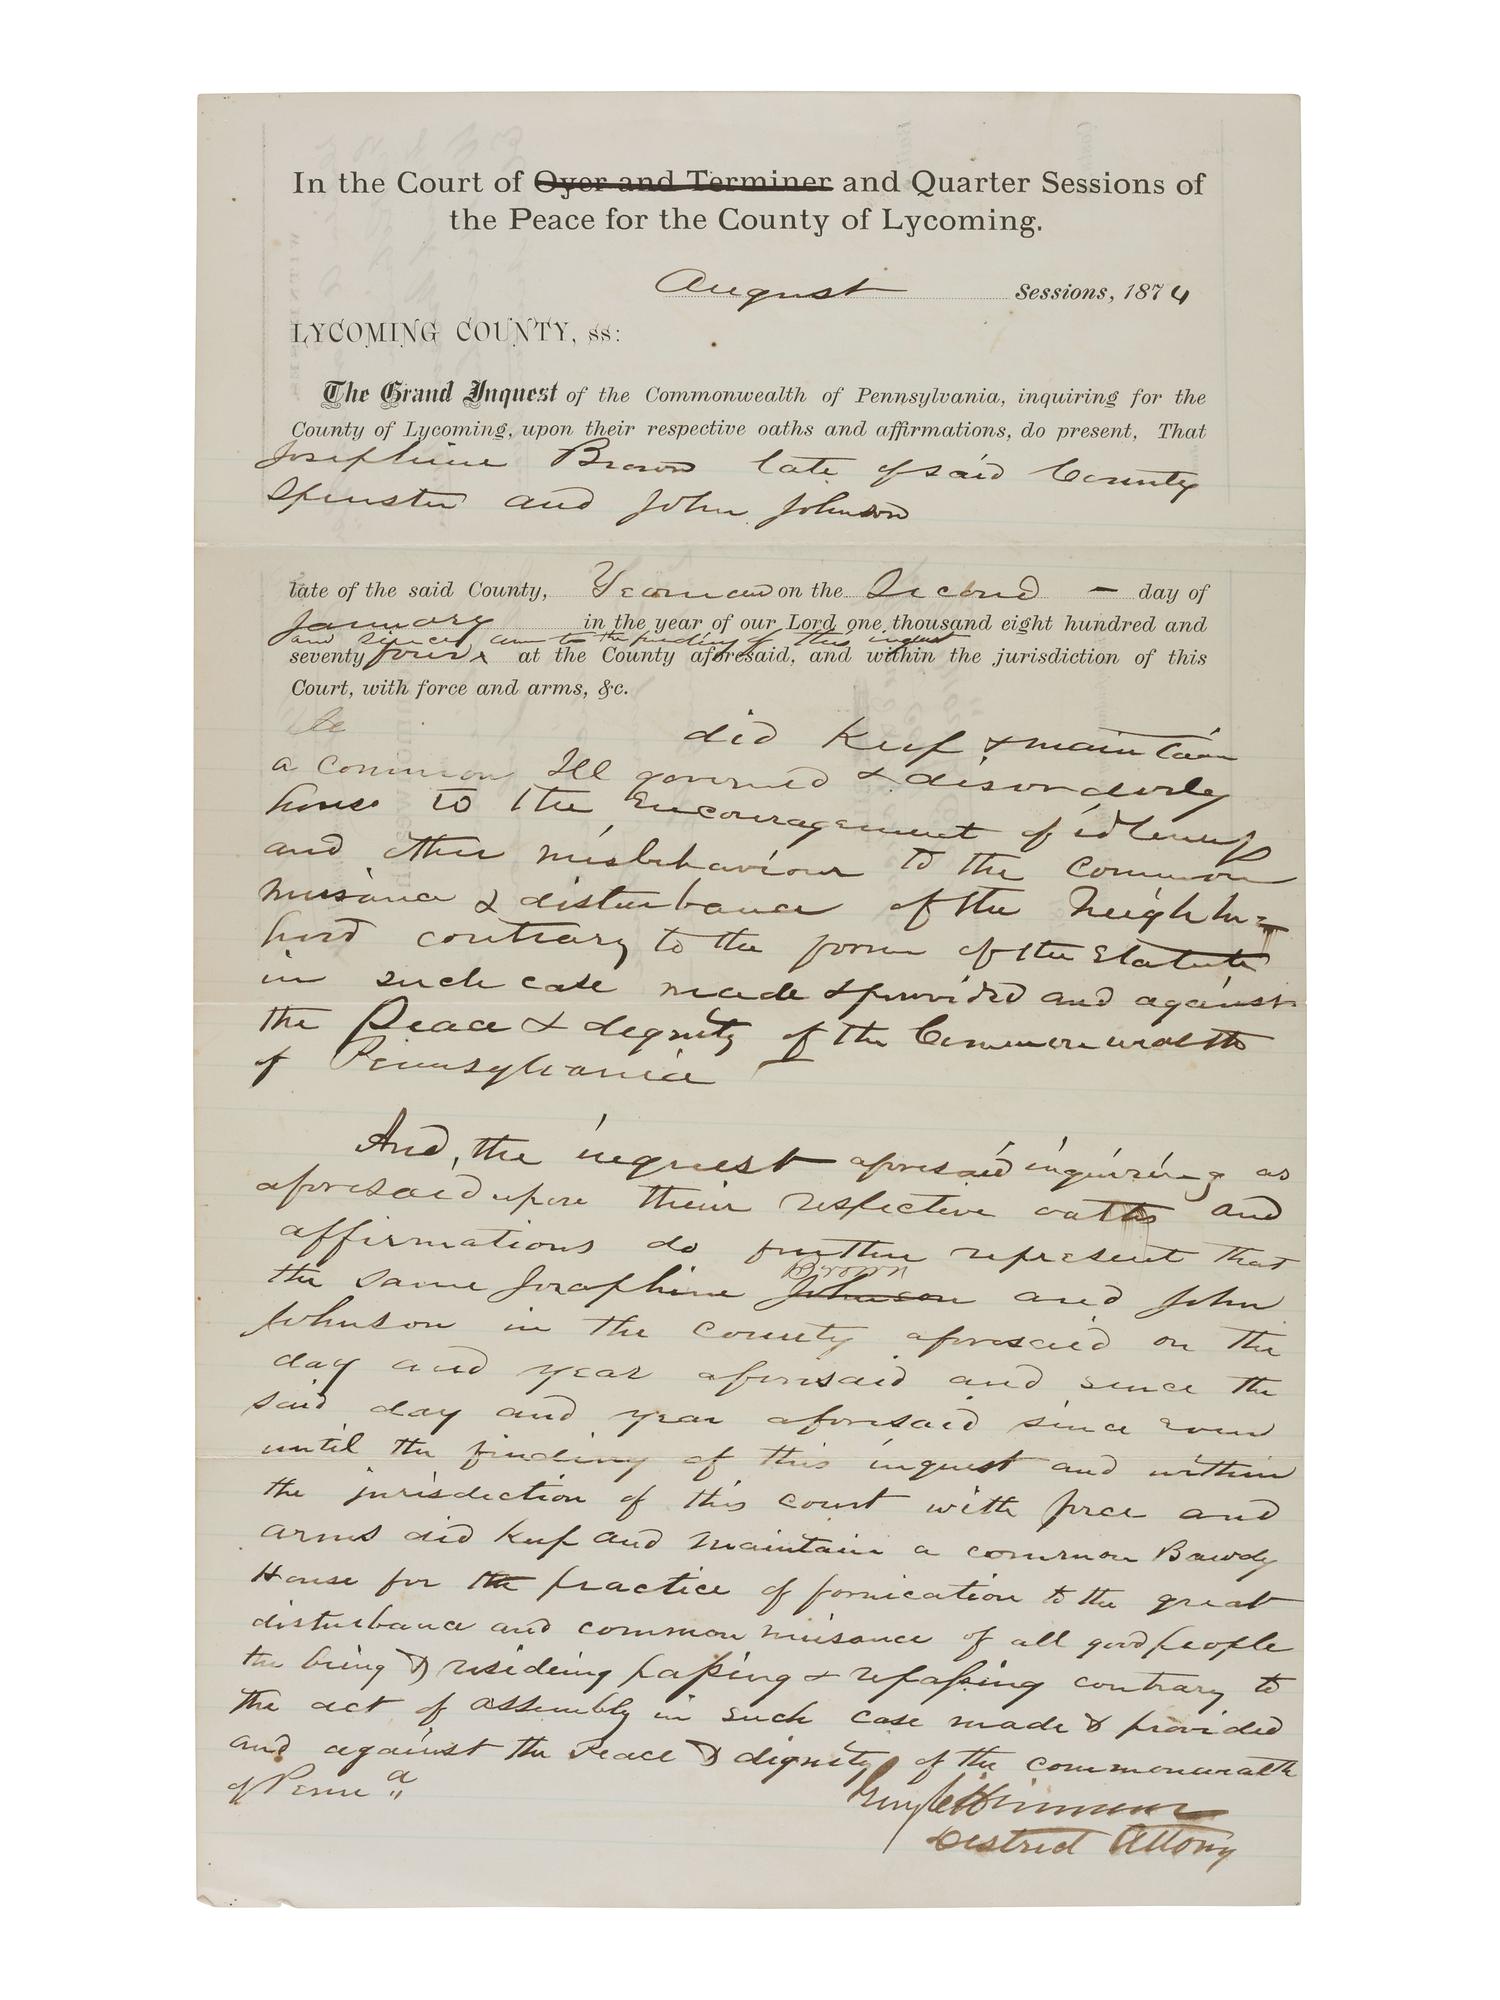 In the Court of Oyer and Terminer and Quarter Sessions of
the Peace for the County of Lycoming.
August Sessions, 1874
LYCOMING COUNTY, ss:
The Grand Inquest of the Commonwealth of Pennsylvania, inquiring for the
County of Lycoming, upon their respective oaths and affirmations, do present, That
Josephine Brown late of said County
Spinster and John Johnson
late of the said County, Yeoman on the Second - day of
January in the year of our Lord one thousand eight hundred and
and since to the finding of this inquest
seventy four at the County aforesaid, and within the jurisdiction of this
Court, with force and arms, &c.
did Keep & maintain
a common Ill governed & disorderly
house to the Encouragement of idleness
and other misbehaviour to the common
nuisance & disturbance of the Neighbor=
hood contrary to the form of the Statute
in such case made & provided and against
the Peace & dignity of the Commonwealth
of Pennsylvania
And, the inquest aforesaid inquiring as
aforesaid upon their respective oaths and
affirmations do further represent that
Brown
the same Josephine Johnson and John
Johnson in the county aforesaid on the
day and year aforesaid and since the
said day and year aforesaid since even
until the finding of this inquest and within
the jurisdiction of this court with force and
arms did keep and maintain a common Bawdy
House for the practice of fornication to the great
disturbance and common nuisance of all good people
the being & resideing passing & repassing contrary to
the act of assembly in such case made & provided
and against the Peace & dignity of the commonwealth
of Penna
District Attorny